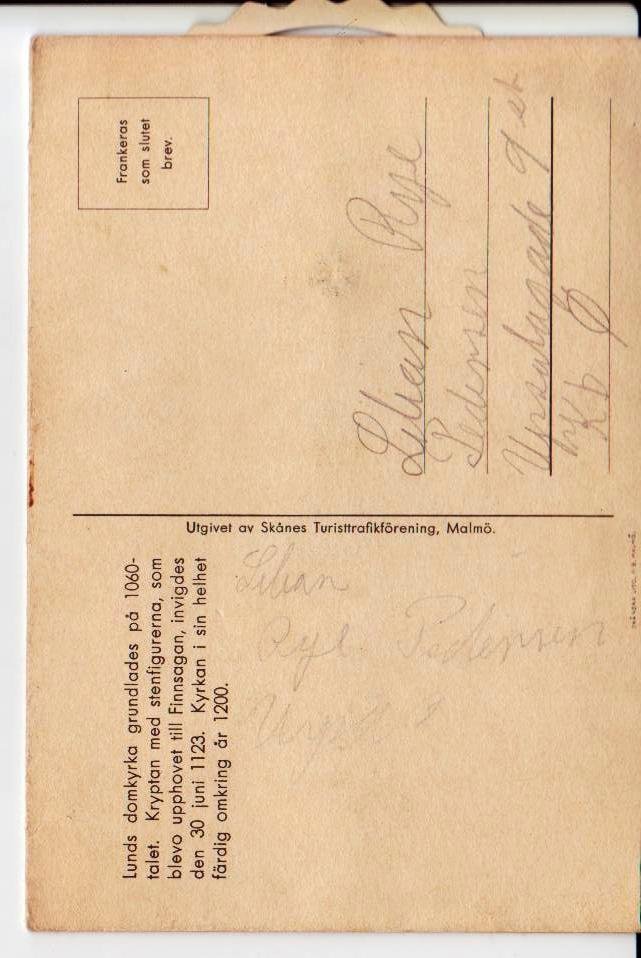 Lunds domkyrka grundlades på 1060-
talet. Kryptan med stenfigurerna, som
blevo upphovet till Finnsagan, invigdes
den 30 juni 1123. Kyrkan i sin helhet
färdig omkring år 1200.
Lilian
Rye Pedersen
Utgivet av Skånes Turisttrafikförening, Malmö.
Frankeras
som slutet
brev.
Lilian Rye
Pedersen
Upsalagade 9 st
Kb Ø